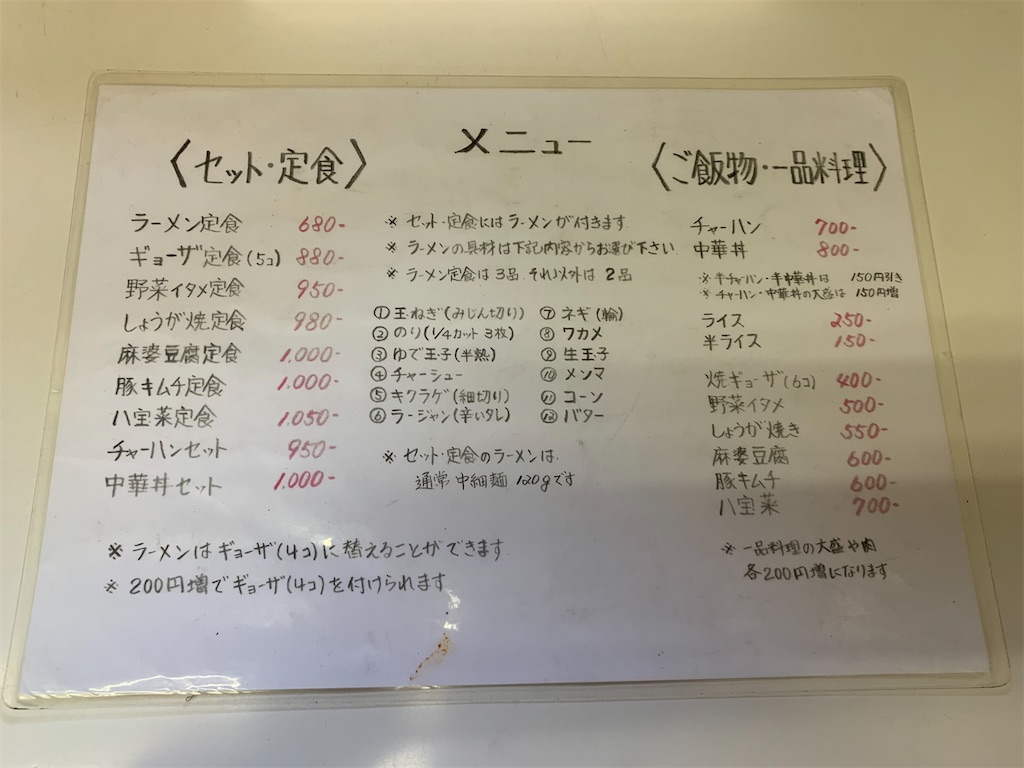 メニュー
〈セット・定食〉
ラーメン定食 680-
ギョーザ定食(5コ) 880-
野菜イタメ定食 950-
しょうが焼定食 980-
麻婆豆腐定食 1,000-
豚キムチ定食 1,000-
八宝菜定食 1,050-
チャーハンセット 950-
中華丼セット 1,000-
※ セット・定食にはラーメンが付きます
※ ラーメンの具材は下記内容からお選び下さい
※ ラーメン定食は3品、それ以外は2品
① 玉ねぎ(みじん切り)
② のり(1/4カット 3枚)
③ ゆで玉子(半熟)
④ チャーシュー
⑤ キクラゲ(細切り)
⑥ ラージャン(辛いタレ)
⑦ ネギ(輪)
⑧ ワカメ
⑨ 生玉子
⑩ メンマ
⑪ コーン
⑫ バター
※ セット・定食のラーメンは、
通常 中細麺 120gです
※ ラーメンはギョーザ(4コ)に替えることができます
※ 200円増でギョーザ(4コ)を付けられます
〈ご飯物・一品料理〉
チャーハン 700-
中華丼 800-
※ 半チャーハン・半中華丼は 150円引き
※ チャーハン・中華丼の大盛は 150円増
ライス 250-
半ライス 150-
焼ギョーザ(6コ) 400-
野菜イタメ 500-
しょうが焼き 550-
麻婆豆腐 600-
豚キムチ 600-
八宝菜 700-
※ 一品料理の大盛や肉
各200円増になります